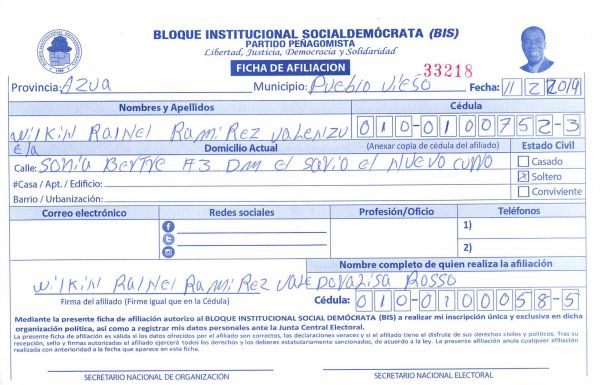 BLOQUE INSTITUCIONAL SOCIALDEMÓCRATA (BIS)
PARTIDO PEÑAGOMISTA
Libertad, Justicia, Democracia y Solidaridad
FICHA DE AFILIACION
33218
Provincia: AZUA Municipio: PUEBLO VIESO Fecha: 11 2 2019
Nombres y Apellidos Cédula
WILKIN RAINEL RAMIREZ VALENZU 010-0100752-3
E/a Domicilio Actual (Anexar copia de cédula del afiliado) Estado Civil
Calle: SONIA BERTRE #3 DM el el NUEVO Casado
#Casa / Apt. / Edificio: X Soltero
Barrio / Urbanización: Conviviente
Correo electrónico Redes sociales Profesión/Oficio Teléfonos
1)
2)
Nombre completo de quien realiza la afiliación
WILKIN RAINEL RAMIREZ VALE ROSSO
Firma del afiliado (Firme igual que en la Cédula) Cédula: 010-0100058-5
Mediante la presente ficha de afiliación autorizo al BLOQUE INSTITUCIONAL SOCIAL DEMÓCRATA (BIS) a realizar mi inscripción única y exclusiva en dicha
organización política, así como a registrar mis datos personales ante la Junta Central Electoral.
La presente ficha de afiliación es válida si las datos ofrecidos por el afiliado son correctos, las declaraciones veraces y si el afiliado tiene el disfrute de sus derechos civiles y políticos. Tras su
recepción, sello y firmas autorizadas el afiliado ejercerá todos los derechos y los deberes estatutariamente sancionados, de acuerdo a la ley. La presente afiliación anula cualquier afiliación
realizada con anterioridad a la fecha que aparece en esta ficha.
SECRETARIO NACIONAL DE ORGANIZACIÓN SECRETARIO NACIONAL ELECTORAL